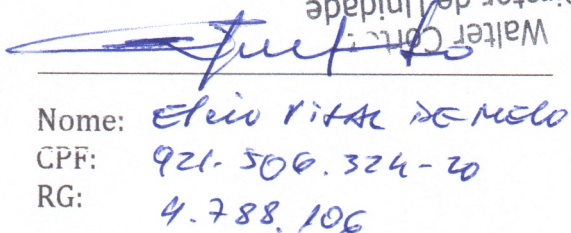 Diretor de Unidade
Walter Cort
Nome: Elcio Vital DE MELO
CPF: 921.506.324-20
RG: 4.788.106